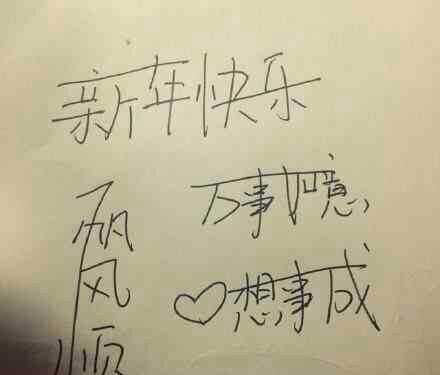 新年快乐
万事如意
♡想事成
一帆风顺